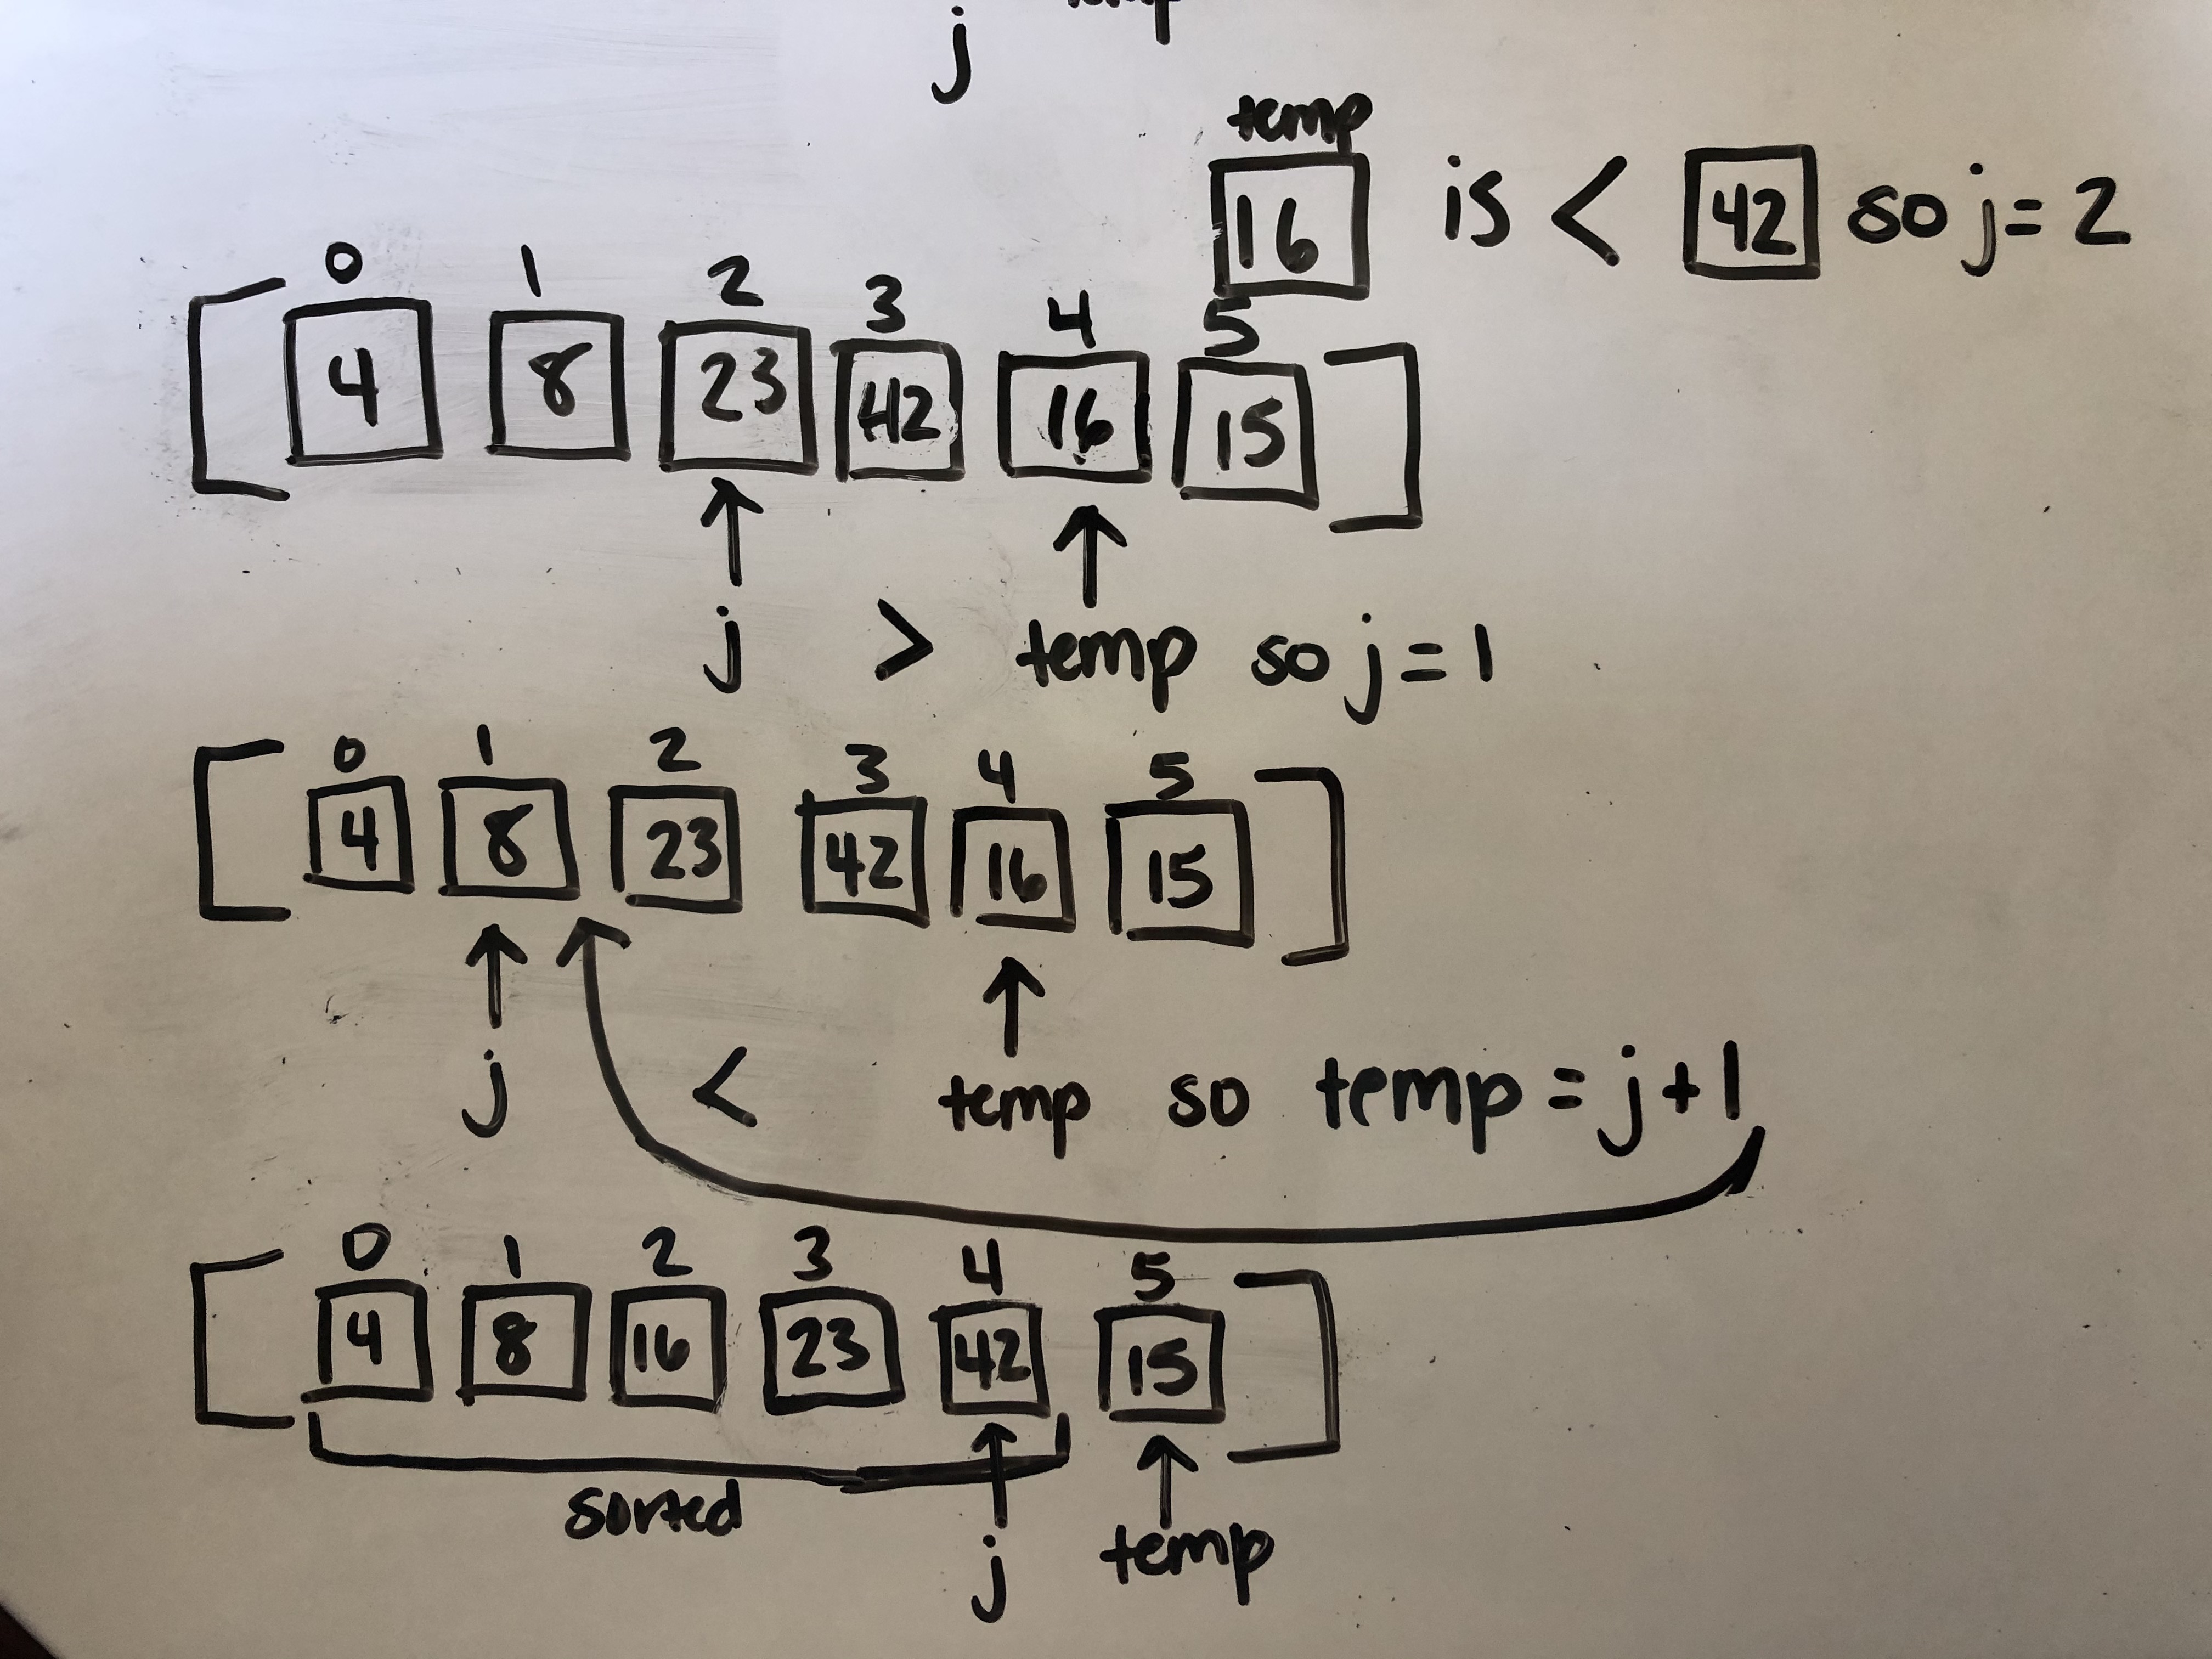 j
temp
16 is < 42 so j = 2
0 1 2 3 4 5
[ 4 8 23 42 16 15 ]
j > temp so j = 1
0 1 2 3 4 5
[ 4 8 23 42 16 15 ]
j < temp so temp = j + 1
0 1 2 3 4 5
[ 4 8 16 23 42 15 ]
sorted
j temp